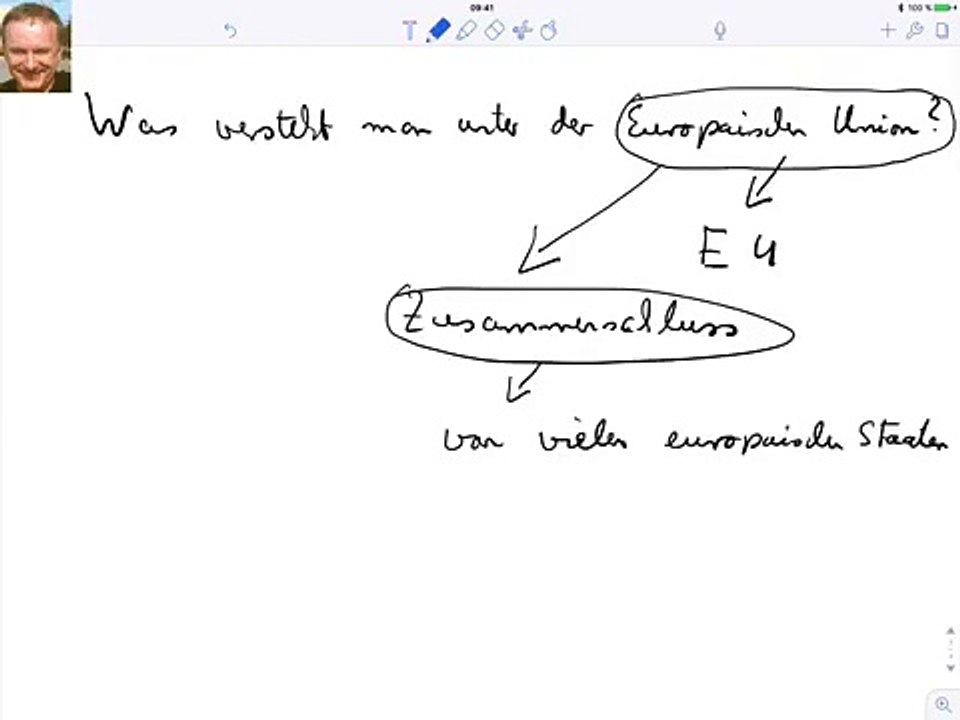 09:41
100 %
T
Was versteht man unter der Europäischen Union?
EU
Zusammenschluss
von vielen europäischen Staaten